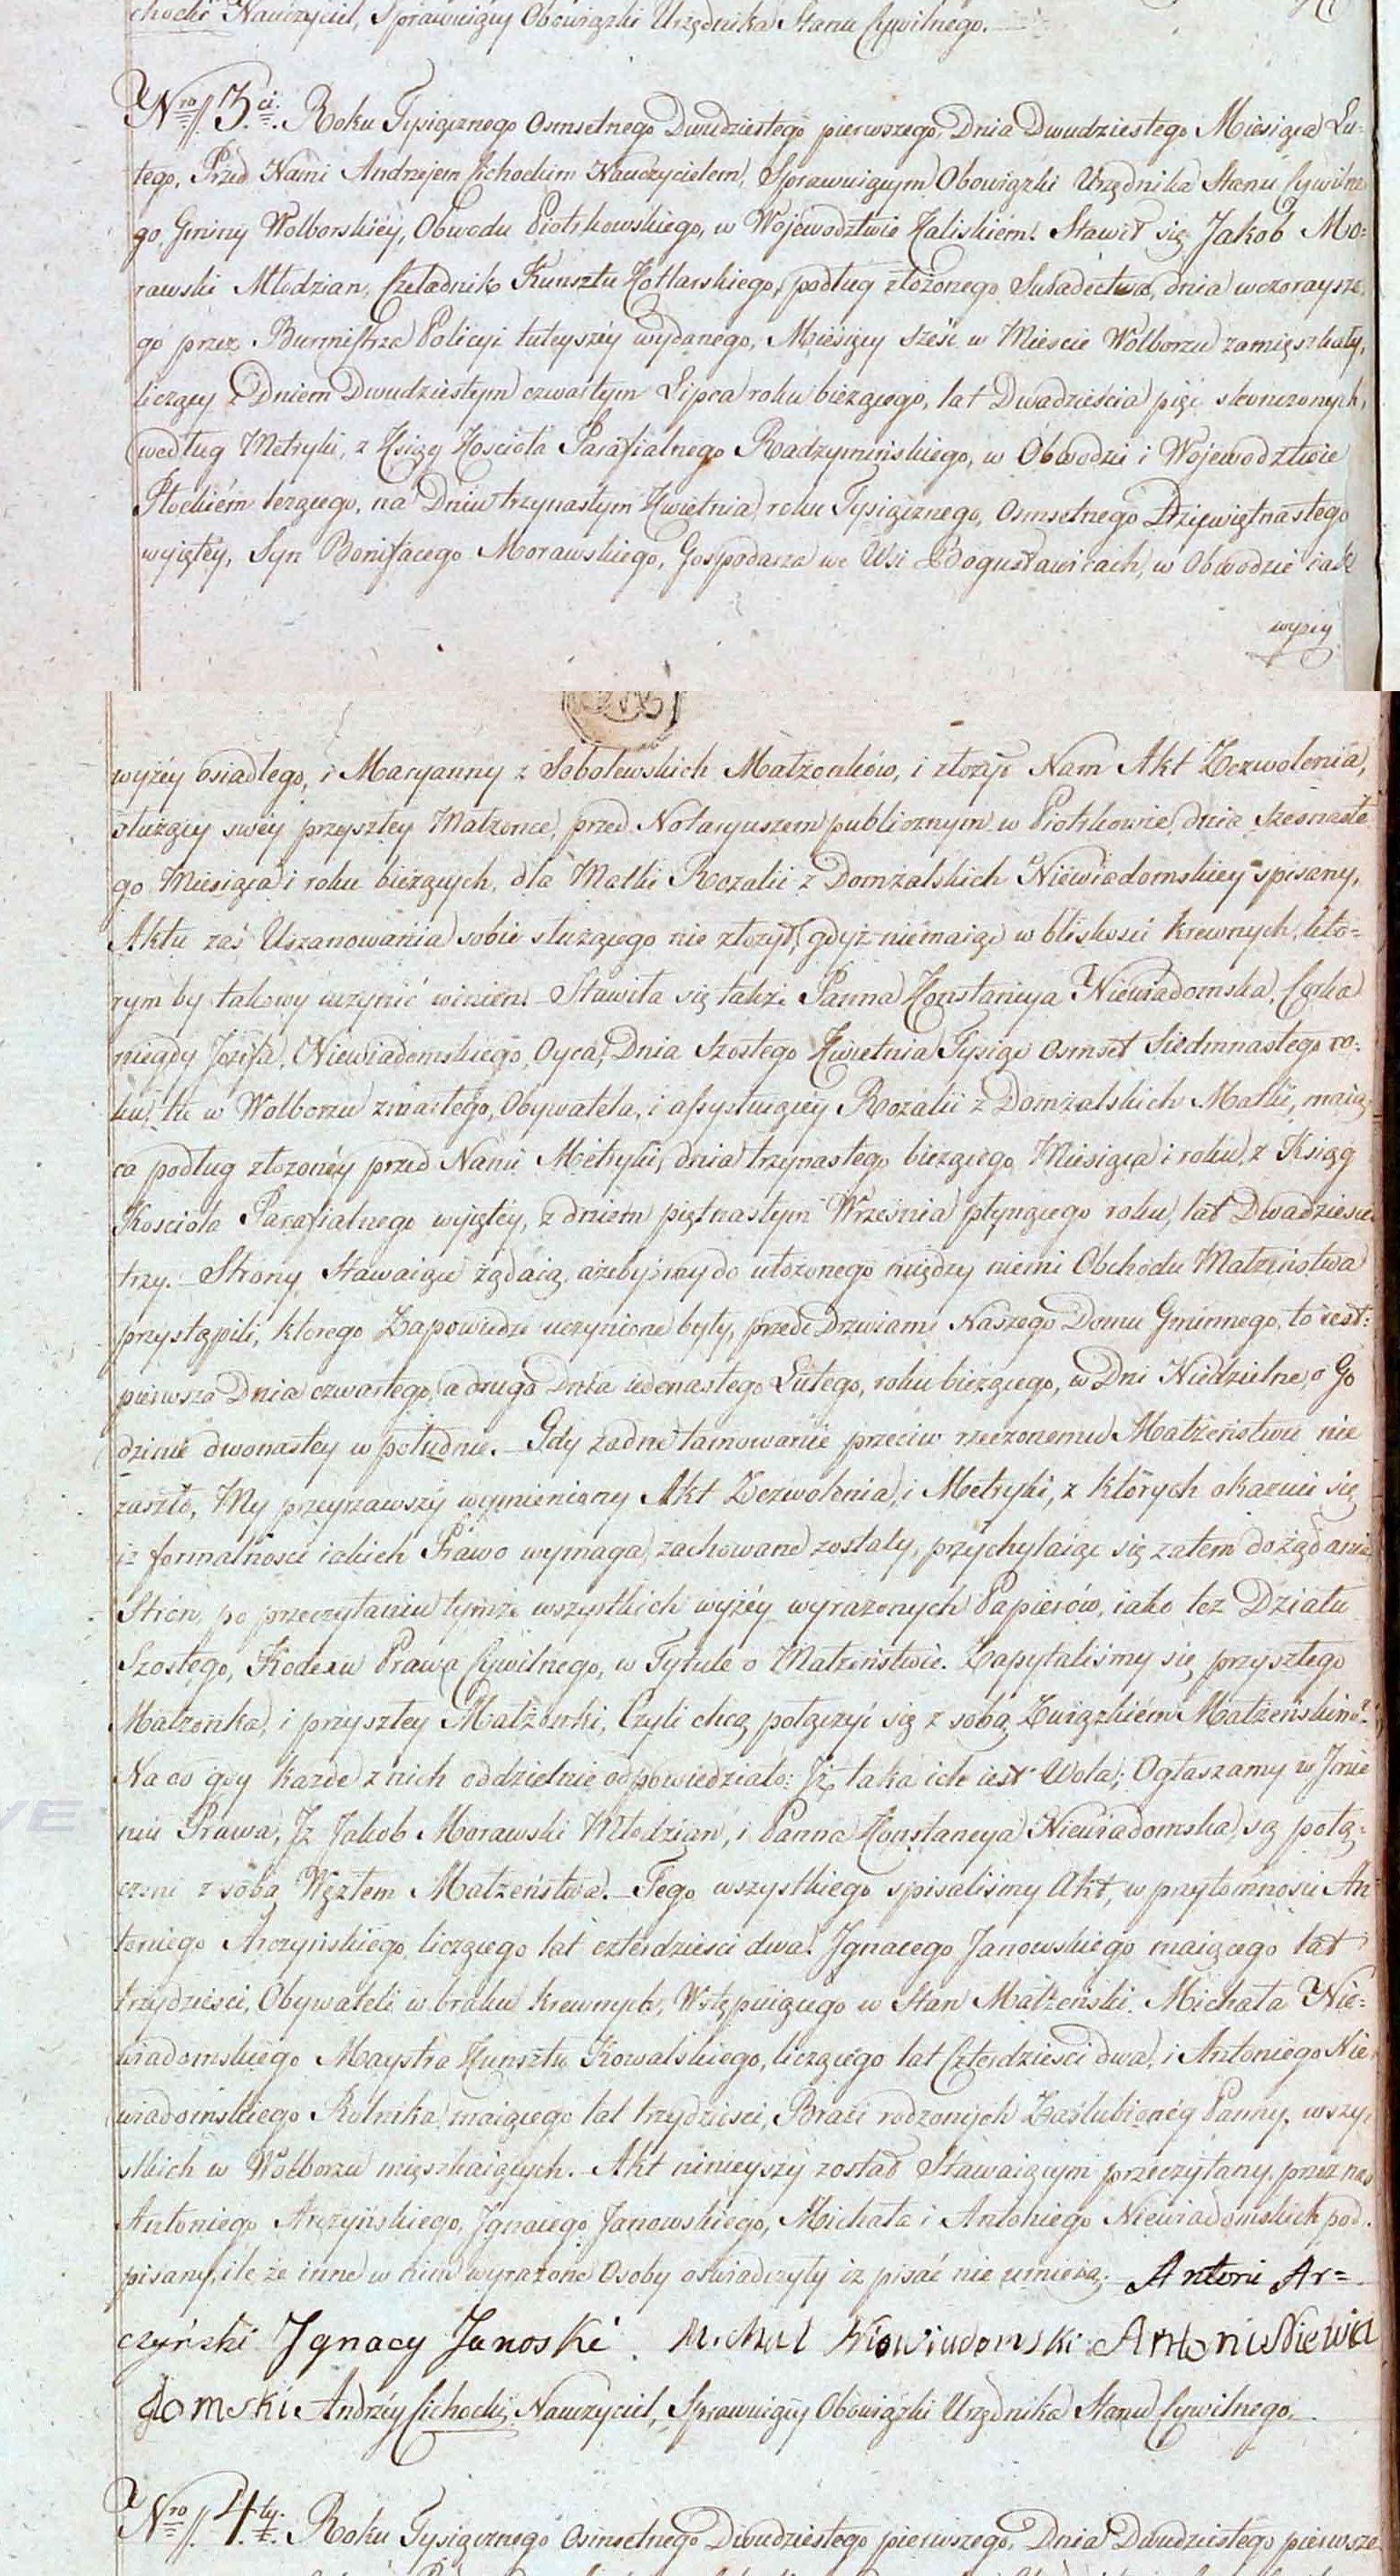 chocki Nauczyciel, Sprawuiący Obowiązki Urzędnika Stanu Cywilnego.
Nro 3ci. Roku Tysiącznego Osmsetnego Dwudziestego pierwszego, Dnia Dwudziestego Miesiąca Lu=
tego, Przed Nami Andrzejem Cichockim Nauczycielem, Sprawuiącym Obowiązki Urzędnika Stanu Cywilne
go Gminy Wolborskiéy, Obwodu Piotrkowskiego, w Województwie Kaliskiém. Stawił się Jakob Mo=
rawski Młodzian, Czeladnik Kunsztu Kotlarskiego, podług złożonego Swiadectwa, dnia wczorayszе
go przez Burmistrza Policyi tuteyszéy wydanego, Miesięcy sześć w Miescie Wolborzu zamięszkały,
liczący z Dniem Dwudziestym czwartym Lipca roku bieżącego, lat Dwadzieścia pięć skonczonych,
według Metryki, z Xsiąg Kościoła Parafialnego Radzymińskiego, w Obwodzie i Województwie
Płockiém leżącego, na Dniu trzynastym Kwietnia roku Tysiącznego, Osmsetnego Dziewiętnastego
wyiętéy, Syn Bonifacego Morawskiego, Gospodarza we Wsi Bogusławicach, w Obwodzie iak
wyżey
wyżéy osiadłego, i Maryanny z Sobolewskich Małżonków, i złożył Nam Akt Zezwolenia,
służący swéy przyszłey Małżonce, przed Notaryuszem publicznym w Piotrkowie dnia szesnaste
go Miesiąca i roku bieżących, dla Matki Rozalii z Domżalskich Niewiadomskiey spisany,
Aktu zaś Uszanowania sobie służącego nie złożył, gdyż niemaiąc w bliskosci krewnych, któ=
rym by takowy uczynić winien. Stawiła się także Panna Konstancya Niewiadomska, Corka
niegdy Józefa Niewiadomskiego, Oyca, Dnia Szostego Kwietnia Tysiąc Osmset Siedmnastego ro=
ku, tu w Wolborzu zmarłego, Obywatela, i assystuiącey Rozalii z Domżalskich Matki, maią
ca podług złożonéy przed Nami Metryki, dnia trzynastego bieżącego Miesiąca i roku, z Ksiąg
Kościoła Parafialnego wyiętey, z dniem piętnastym Września płynącego roku, lat Dwadziescia
trzy. Strony Stawaiące żądaią, ażebyśmy do ułożonego między niemi Obchodu Małżeństwa
przystąpili, ktorego Zapowiedzi uczynione były, przede Drzwiami Naszego Domu Gminnego, to iest:
pierwsza Dnia czwartego, a druga Dnia iedenastego Lutego, roku bieżącego, w Dni Niedzielne, o Go
dzinie dwonastey w południe. Gdy żadne tamowanie przeciw rzeczonemu Małżeństwu nie
zaszło, My przeyrzawszy wymieniony Akt Zezwolenia, i Metryki, z których okazuie się
iż formalności iakich Prawo wymaga, zachowane zostały, przychylaiąc się zatem do żądania
Stron, po przeczytaniu tymże wszystkich wyżéy wyrażonych Papierów, iako też Działu
Szostego, Kodexu Prawa Cywilnego, w Tytule o Małżeństwie. Zapytaliśmy się, przyszłego
Małżonka, i przyszłey Małżonki, Czyli chcą połączyć się z sobą Związkiém Małżeńskim?
Na co gdy każde z nich oddzielnie odpowiedziało: Iż taka ich iest Wola; Ogłaszamy w Imie
niu Prawa, Iż Jakob Morawski Młodzian, i Panna Konstancya Niewiadomska, są połą=
czeni z sobą Węzłem Małżeństwa. Tego wszystkiego spisaliśmy Akt, w przytomnosci An
toniego Arczyńskiego, liczącego lat czterdziesci dwa. Ignacego Janowskiego maiącego lat
trzydziesci, Obywateli, w braku krewnych, Wstępuiącego w Stan Małżeński. Michała Nie=
wiadomskiego Maystra Kunsztu Kowalskiego, liczącego lat Czterdziesci dwa, i Antoniego Nie
wiadomskiego Rolnika, maiącego lat trzydziesci, Braci rodzonych Zaślubionéy Panny, wszy=
stkich w Wolborzu mięszkaiących. Akt ninieyszy został Stawaiącym przeczytany, przez nas
Antoniego Arczyńskiego, Ignacego Janowskiego, Michała i Antoniego Niewiadomskich pod=
pisany, ile że inne w nim wyrażone Osoby oświadczyły iż pisać nie umieią. Antoni Ar=
czyński Jgnacy Janoski Michał Niewiadomski Antoni Niewia
domski Andrzéy Cichocki, Nauczyciel, Sprawuiący Obowiązki Urzędnika Stanu Cywilnego.
Nro 4ty. Roku Tysiącznego Osmsetnego Dwudziestego pierwszego, Dnia Dwudziestego pierwsze